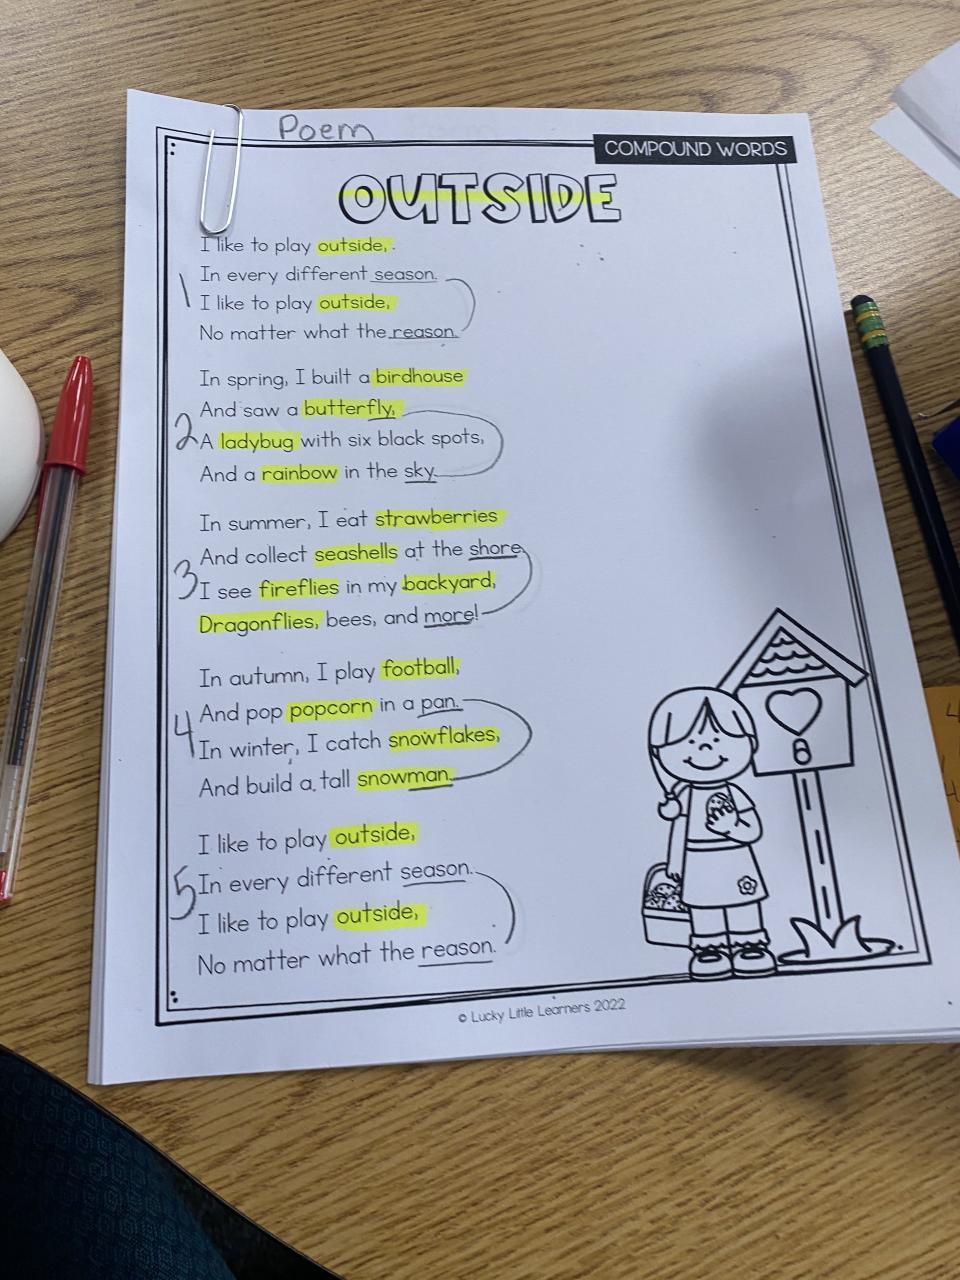 Poem
COMPOUND WORDS
OUTSIDE
I like to play outside,
In every different season.
1
I like to play outside,
No matter what the reason.
In spring, I built a birdhouse
And saw a butterfly,
2
A ladybug with six black spots,
And a rainbow in the sky.
In summer, I eat strawberries
And collect seashells at the shore.
3
I see fireflies in my backyard,
Dragonflies, bees, and more!
In autumn, I play football,
And pop popcorn in a pan.
4
In winter, I catch snowflakes,
And build a tall snowman.
I like to play outside,
5
In every different season.
I like to play outside,
No matter what the reason.
© Lucky Little Learners 2022